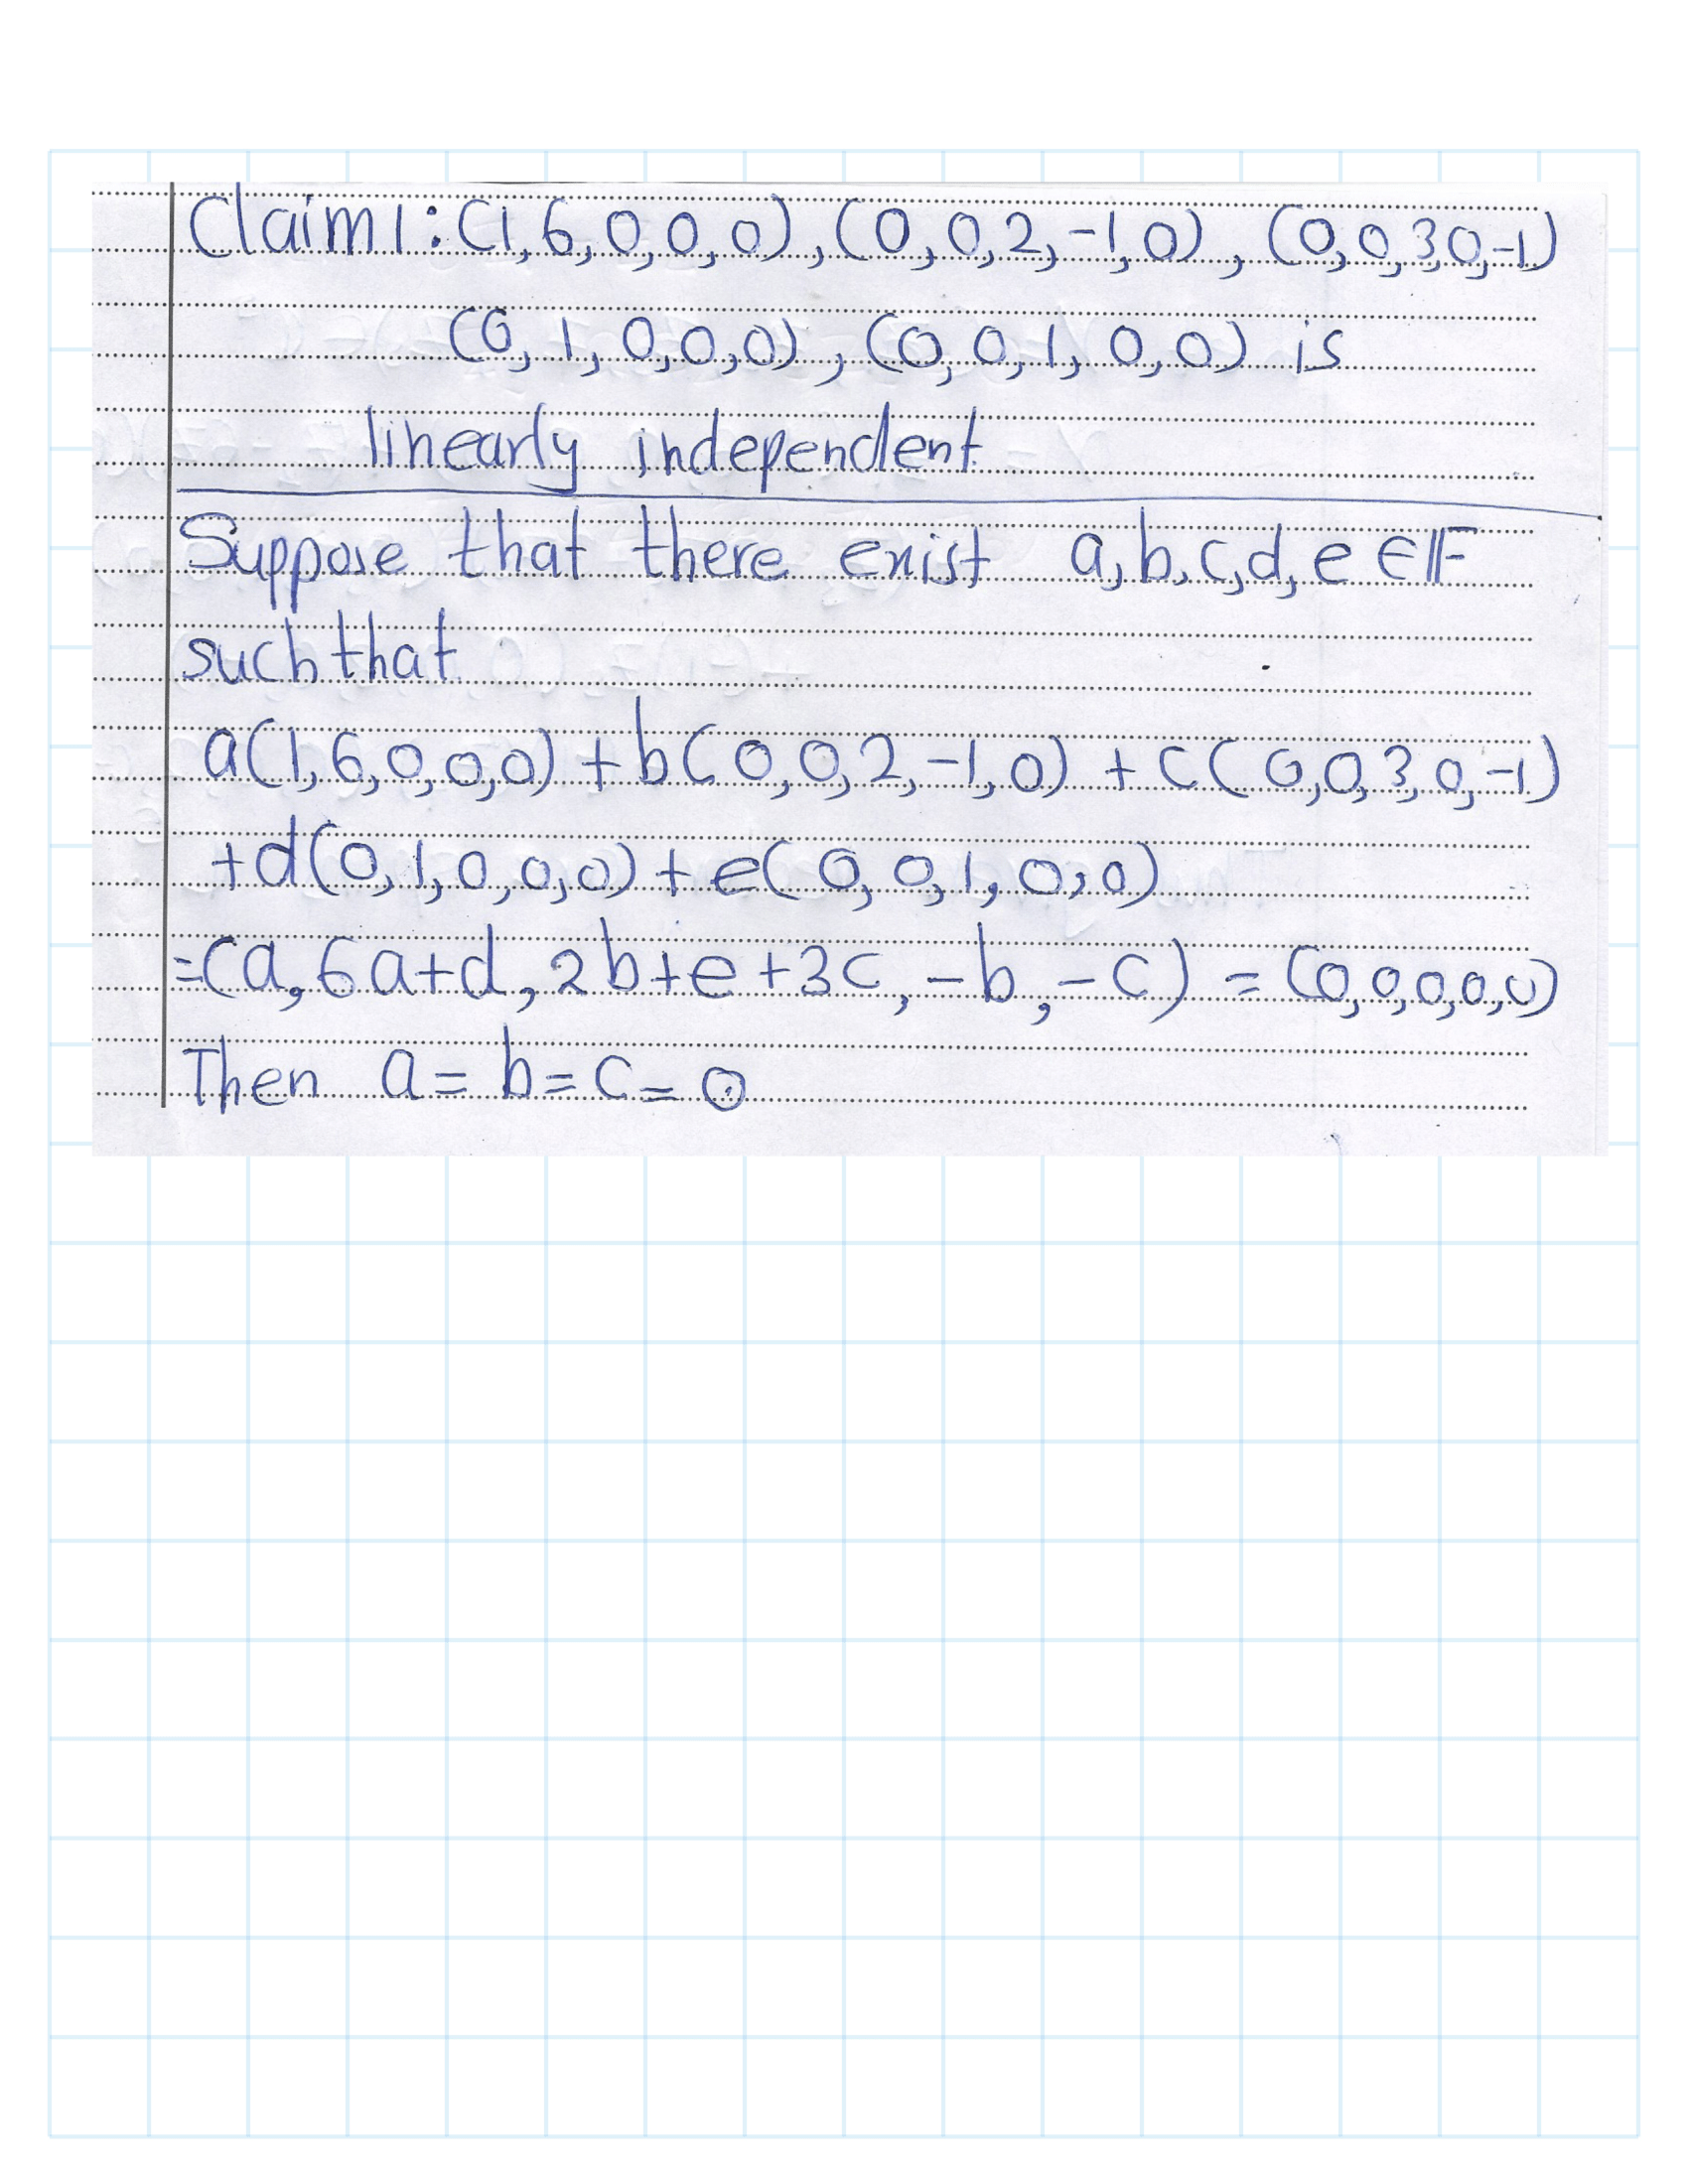 Claim 1: (1,6,0,0,0), (0,0,2,-1,0), (0,0,3,0,-1)
(0,1,0,0,0), (0,0,1,0,0) is
linearly independent
Suppose that there exist a,b,c,d,e ∈ 𝔽
such that
a(1,6,0,0,0) + b(0,0,2,-1,0) + c(0,0,3,0,-1)
+d(0,1,0,0,0) + e(0,0,1,0,0)
=(a, 6a+d, 2b+e+3c, -b, -c) = (0,0,0,0,0)
Then a = b = c = 0